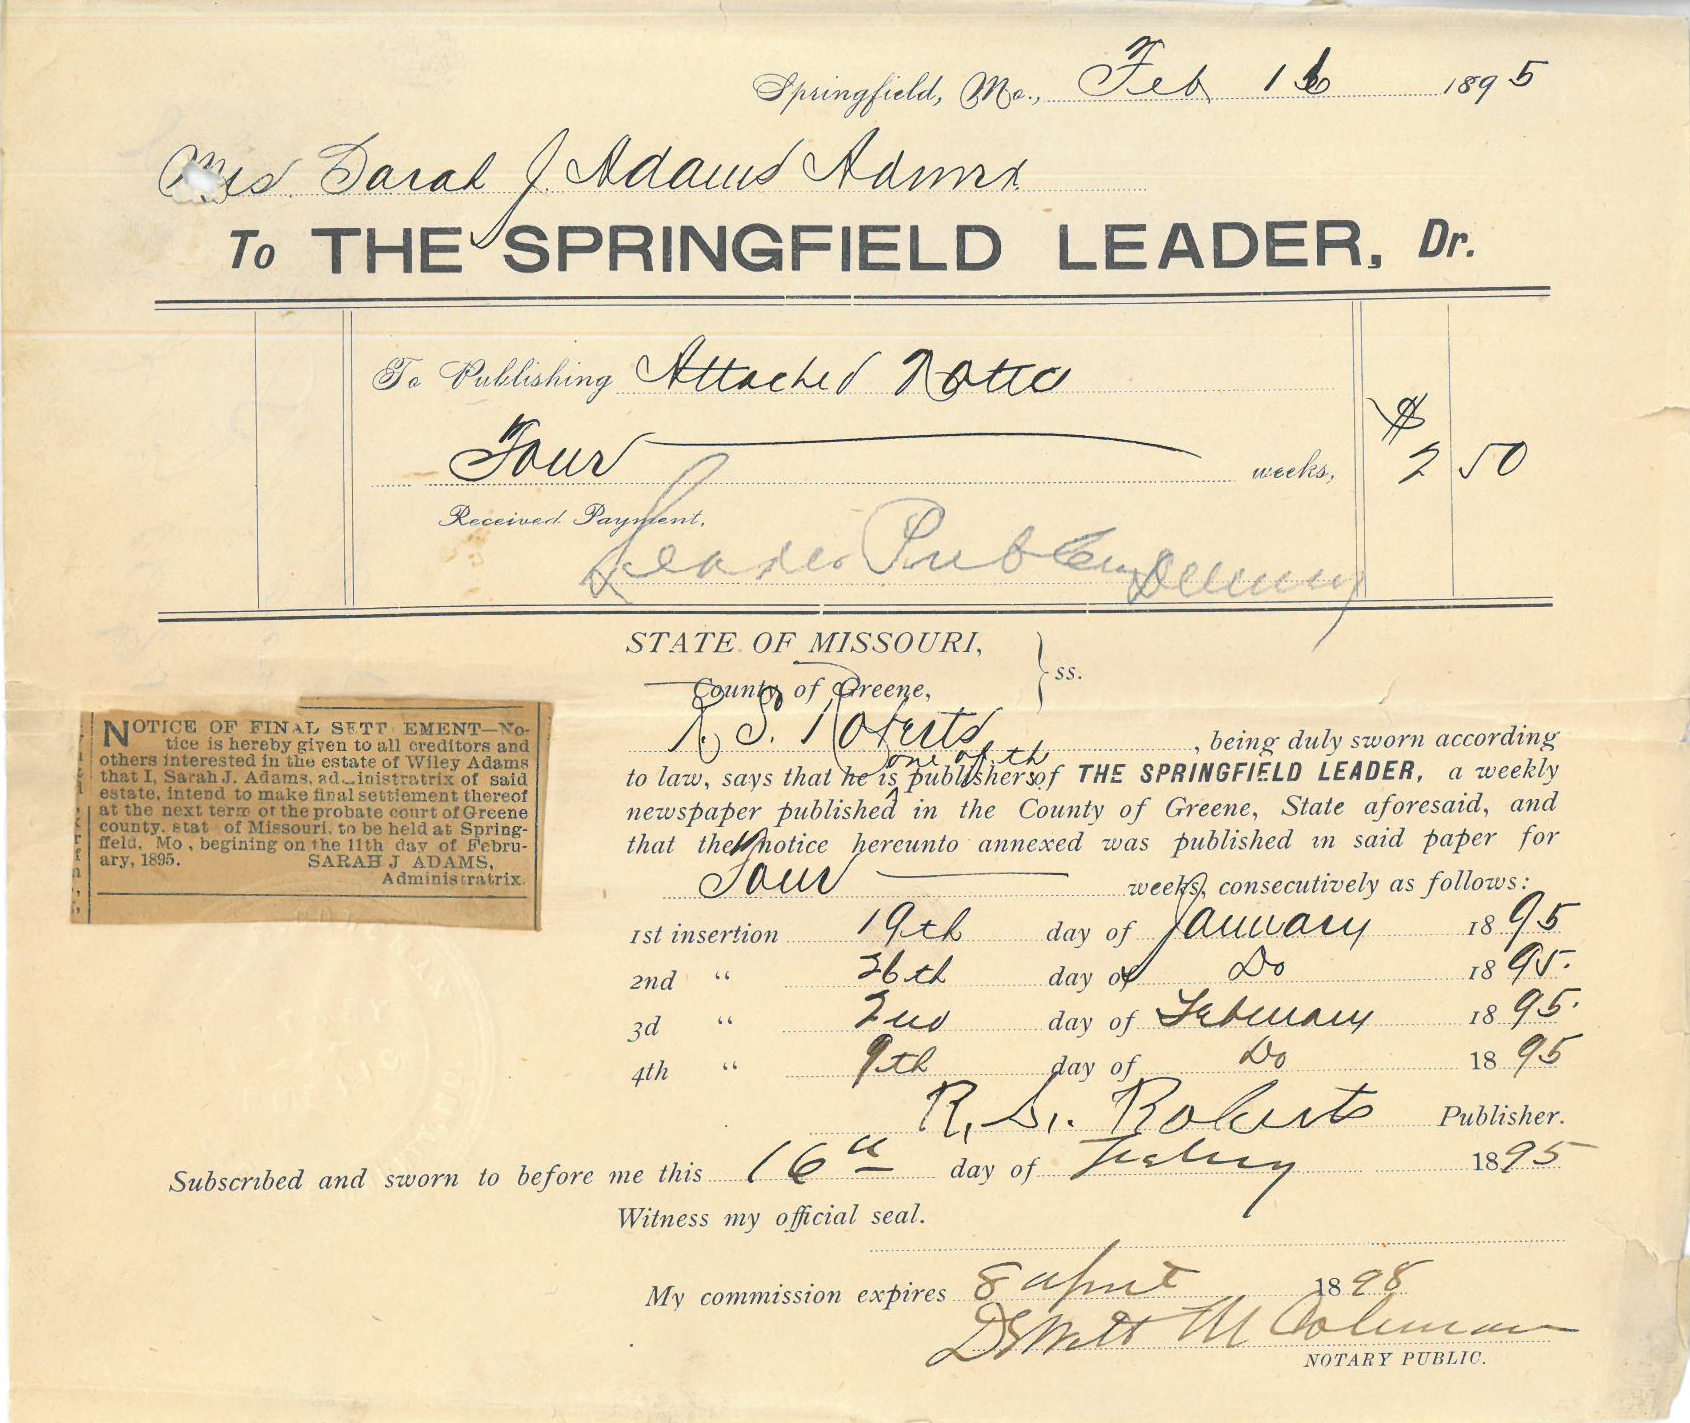 Springfield, Mo., Feb 16 1895
Mrs Sarah J. Adams Admrx
To THE SPRINGFIELD LEADER, Dr.
To Publishing Attached Notice
Four weeks, $ 2 50
Received Payment,
Leader Pub Co
STATE OF MISSOURI,
County of Greene, } ss.
R. S. Roberts, being duly sworn according
one of the
to law, says that he is publishers of THE SPRINGFIELD LEADER, a weekly
newspaper published in the County of Greene, State aforesaid, and
that the notice hereunto annexed was published in said paper for
Four weeks, consecutively as follows:
1st insertion 19th day of January 1895
2nd " 26th day of Do 1895.
3d " 2nd day of February 1895.
4th " 9th day of Do 1895
R. S. Roberts Publisher.
Subscribed and sworn to before me this 16th day of Febry 1895
Witness my official seal.
My commission expires 8 april 1898
DeWitt M Coleman
NOTARY PUBLIC.
NOTICE OF FINAL SETT EMENT—No-
tice is hereby given to all creditors and
others interested in the estate of Wiley Adams
that I, Sarah J. Adams, ad inistratrix of said
estate, intend to make final settlement thereof
at the next term of the probate court of Greene
county, stat of Missouri, to be held at Spring-
ffeld, Mo, begining on the 11th day of Febru-
ary, 1895. SARAH J ADAMS,
Administratrix.